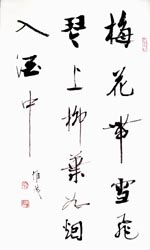 梅花帶雪飛
琴上柳葉和烟
入酒中